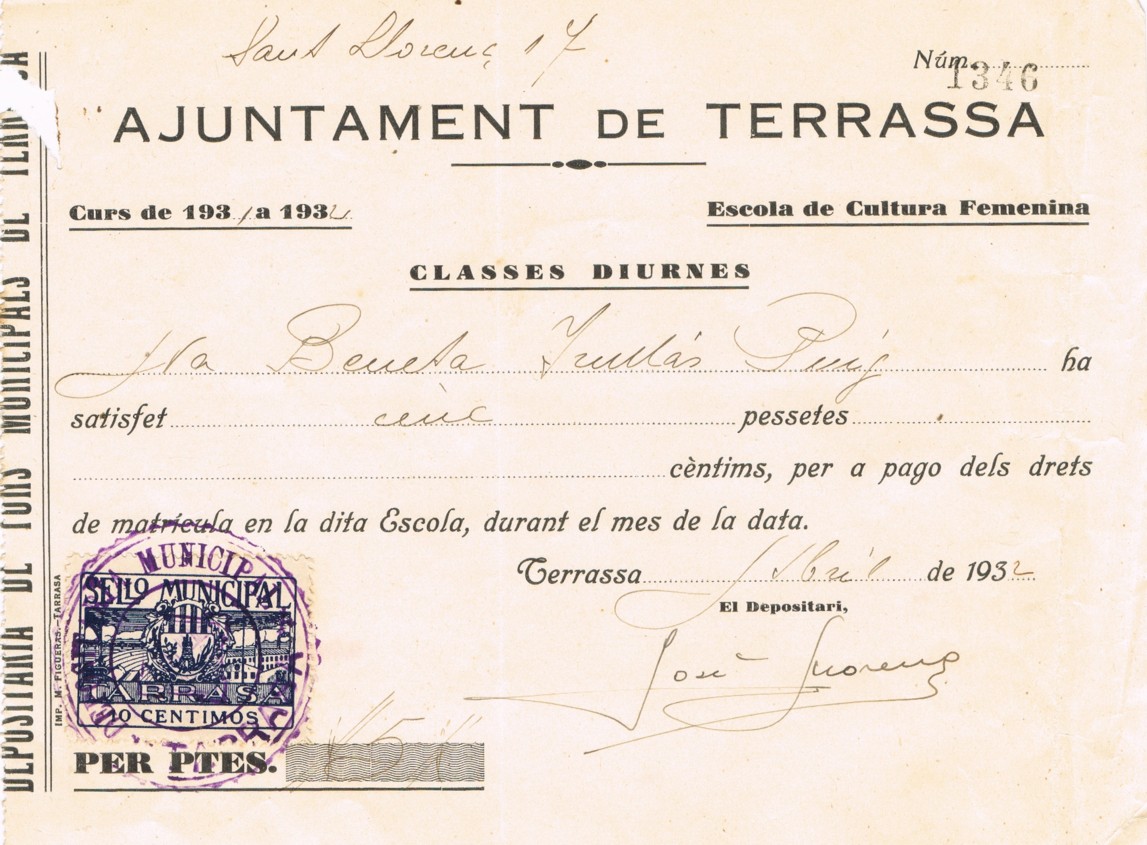 Sant Llorenç 17
Núm. 1346
AJUNTAMENT DE TERRASSA
Curs de 1931 a 1932
Escola de Cultura Femenina
CLASSES DIURNES
Na Beneta Trullás Puig ha
satisfet cinc pessetes
cèntims, per a pago dels drets
de matrícula en la dita Escola, durant el mes de la data.
Terrassa Abril de 1932
El Depositari,
José
SELLO MUNICIPAL
TARRASA
10 CENTIMOS
MUNICIPAL
PER PTES. 5
IMP. M. FIGUERAS.-TARRASA
DEPOSITARIA DE FONS MUNICIPALS DE